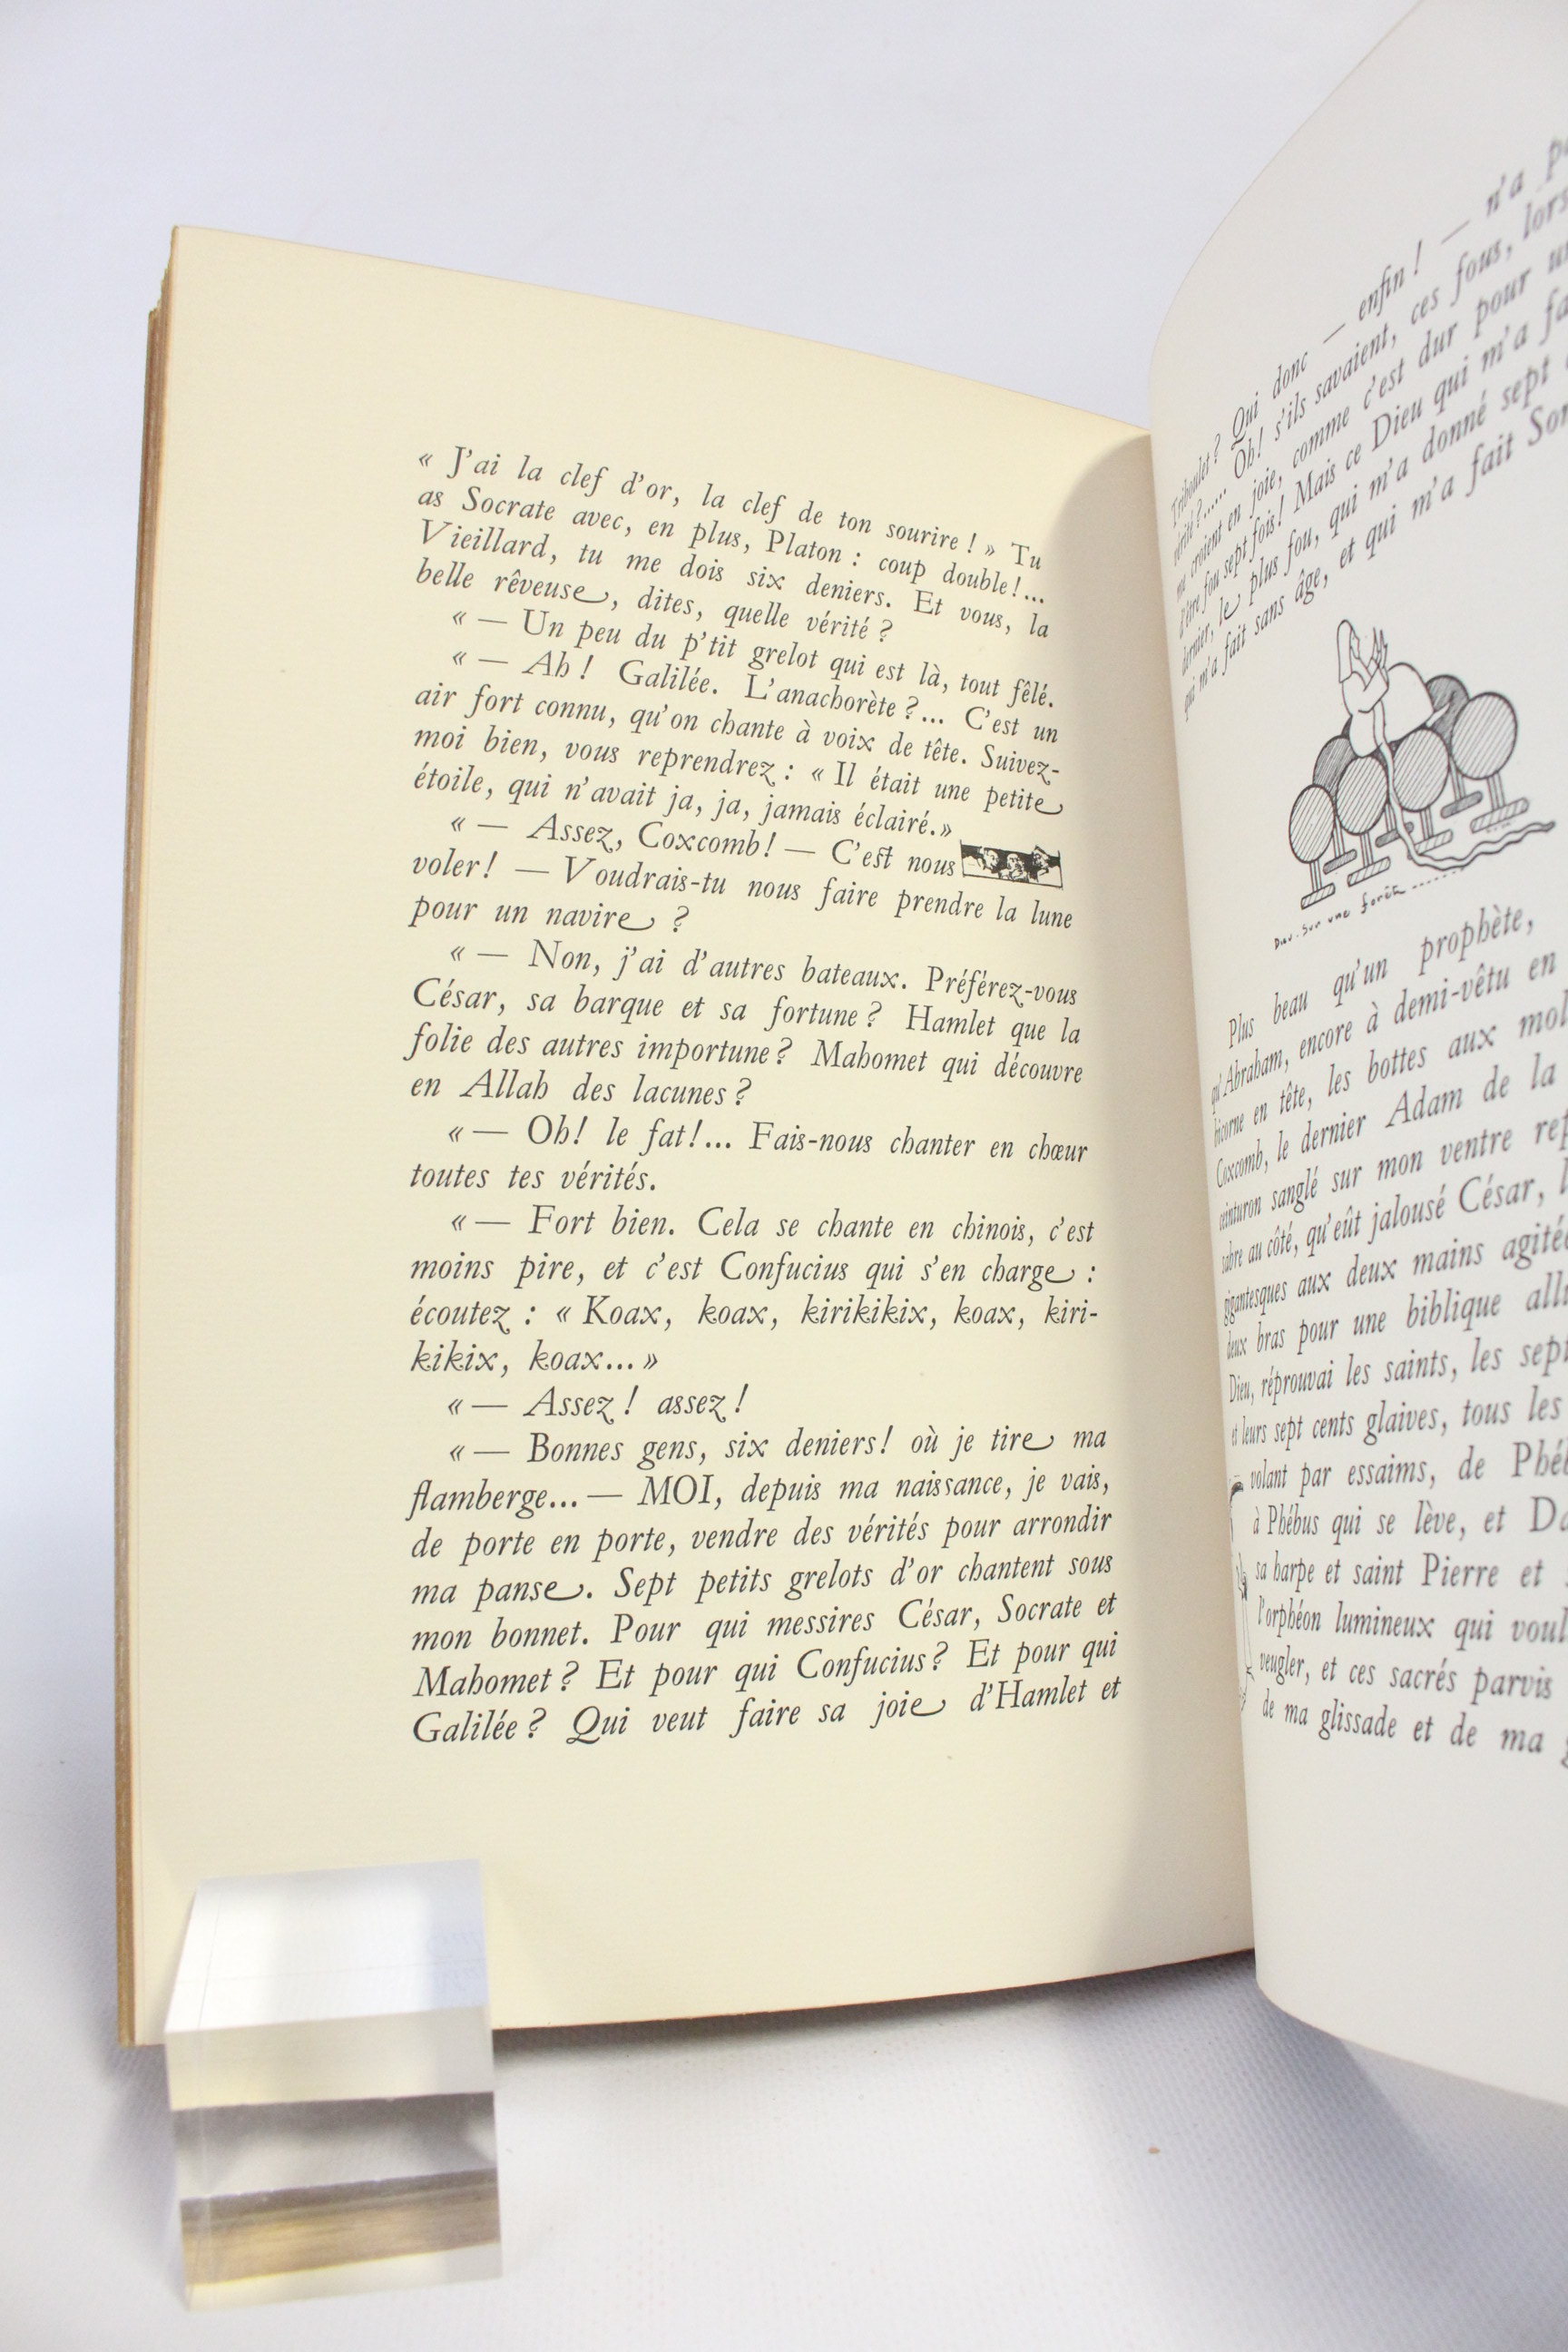 « J'ai la clef d'or, la clef de ton sourire ! » Tu
as Socrate avec, en plus, Platon : coup double !...
Vieillard, tu me dois six deniers. Et vous, la
belle rêveuse, dites, quelle vérité ?
« — Un peu du p'tit grelot qui est là, tout fêlé.
« — Ah ! Galilée. L'anachorète ?... C'est un
air fort connu, qu'on chante à voix de tête. Suivez-
moi bien, vous reprendrez : « Il était une petite
étoile, qui n'avait ja, ja, jamais éclairé.»
« — Assez, Coxcomb ! — C'est nous
voler ! — Voudrais-tu nous faire prendre la lune
pour un navire ?
« — Non, j'ai d'autres bateaux. Préférez-vous
César, sa barque et sa fortune ? Hamlet que la
folie des autres importune ? Mahomet qui découvre
en Allah des lacunes ?
« — Oh ! le fat !... Fais-nous chanter en chœur
toutes tes vérités.
« — Fort bien. Cela se chante en chinois, c'est
moins pire, et c'est Confucius qui s'en charge :
écoutez : « Koax, koax, kirikikix, koax, kiri-
kikix, koax... »
« — Assez ! assez !
« — Bonnes gens, six deniers ! où je tire ma
flamberge... — MOI, depuis ma naissance, je vais,
de porte en porte, vendre des vérités pour arrondir
ma panse. Sept petits grelots d'or chantent sous
mon bonnet. Pour qui messires César, Socrate et
Mahomet ? Et pour qui Confucius ? Et pour qui
Galilée ? Qui veut faire sa joie d'Hamlet et
Triboulet ? Qui donc — enfin ! — n'a
vérité ?..... Oh ! s'ils savaient, ces fous, lors
me croient en joie, comme c'est dur pour
d'être fou sept fois ! Mais ce Dieu qui m'a
dernier, le plus fou, qui m'a donné sept
qui m'a fait sans âge, et qui m'a fait
Dieu sur une forêt
Plus beau qu'un prophète,
qu'Abraham, encore à demi-vêtu en
bicorne en tête, les bottes aux
Coxcomb, le dernier Adam de la
ceinturon sanglé sur mon ventre
sabre au côté, qu'eût jalousé César,
gigantesques aux deux mains
deux bras pour une biblique
Dieu, réprouvai les saints, les sept
et leurs sept cents glaives, tous les
volant par essaims, de
à Phébus qui se lève, et
sa harpe et saint Pierre et
l'orphéon lumineux qui
veugler, et ces sacrés parvis
de ma glissade et de ma